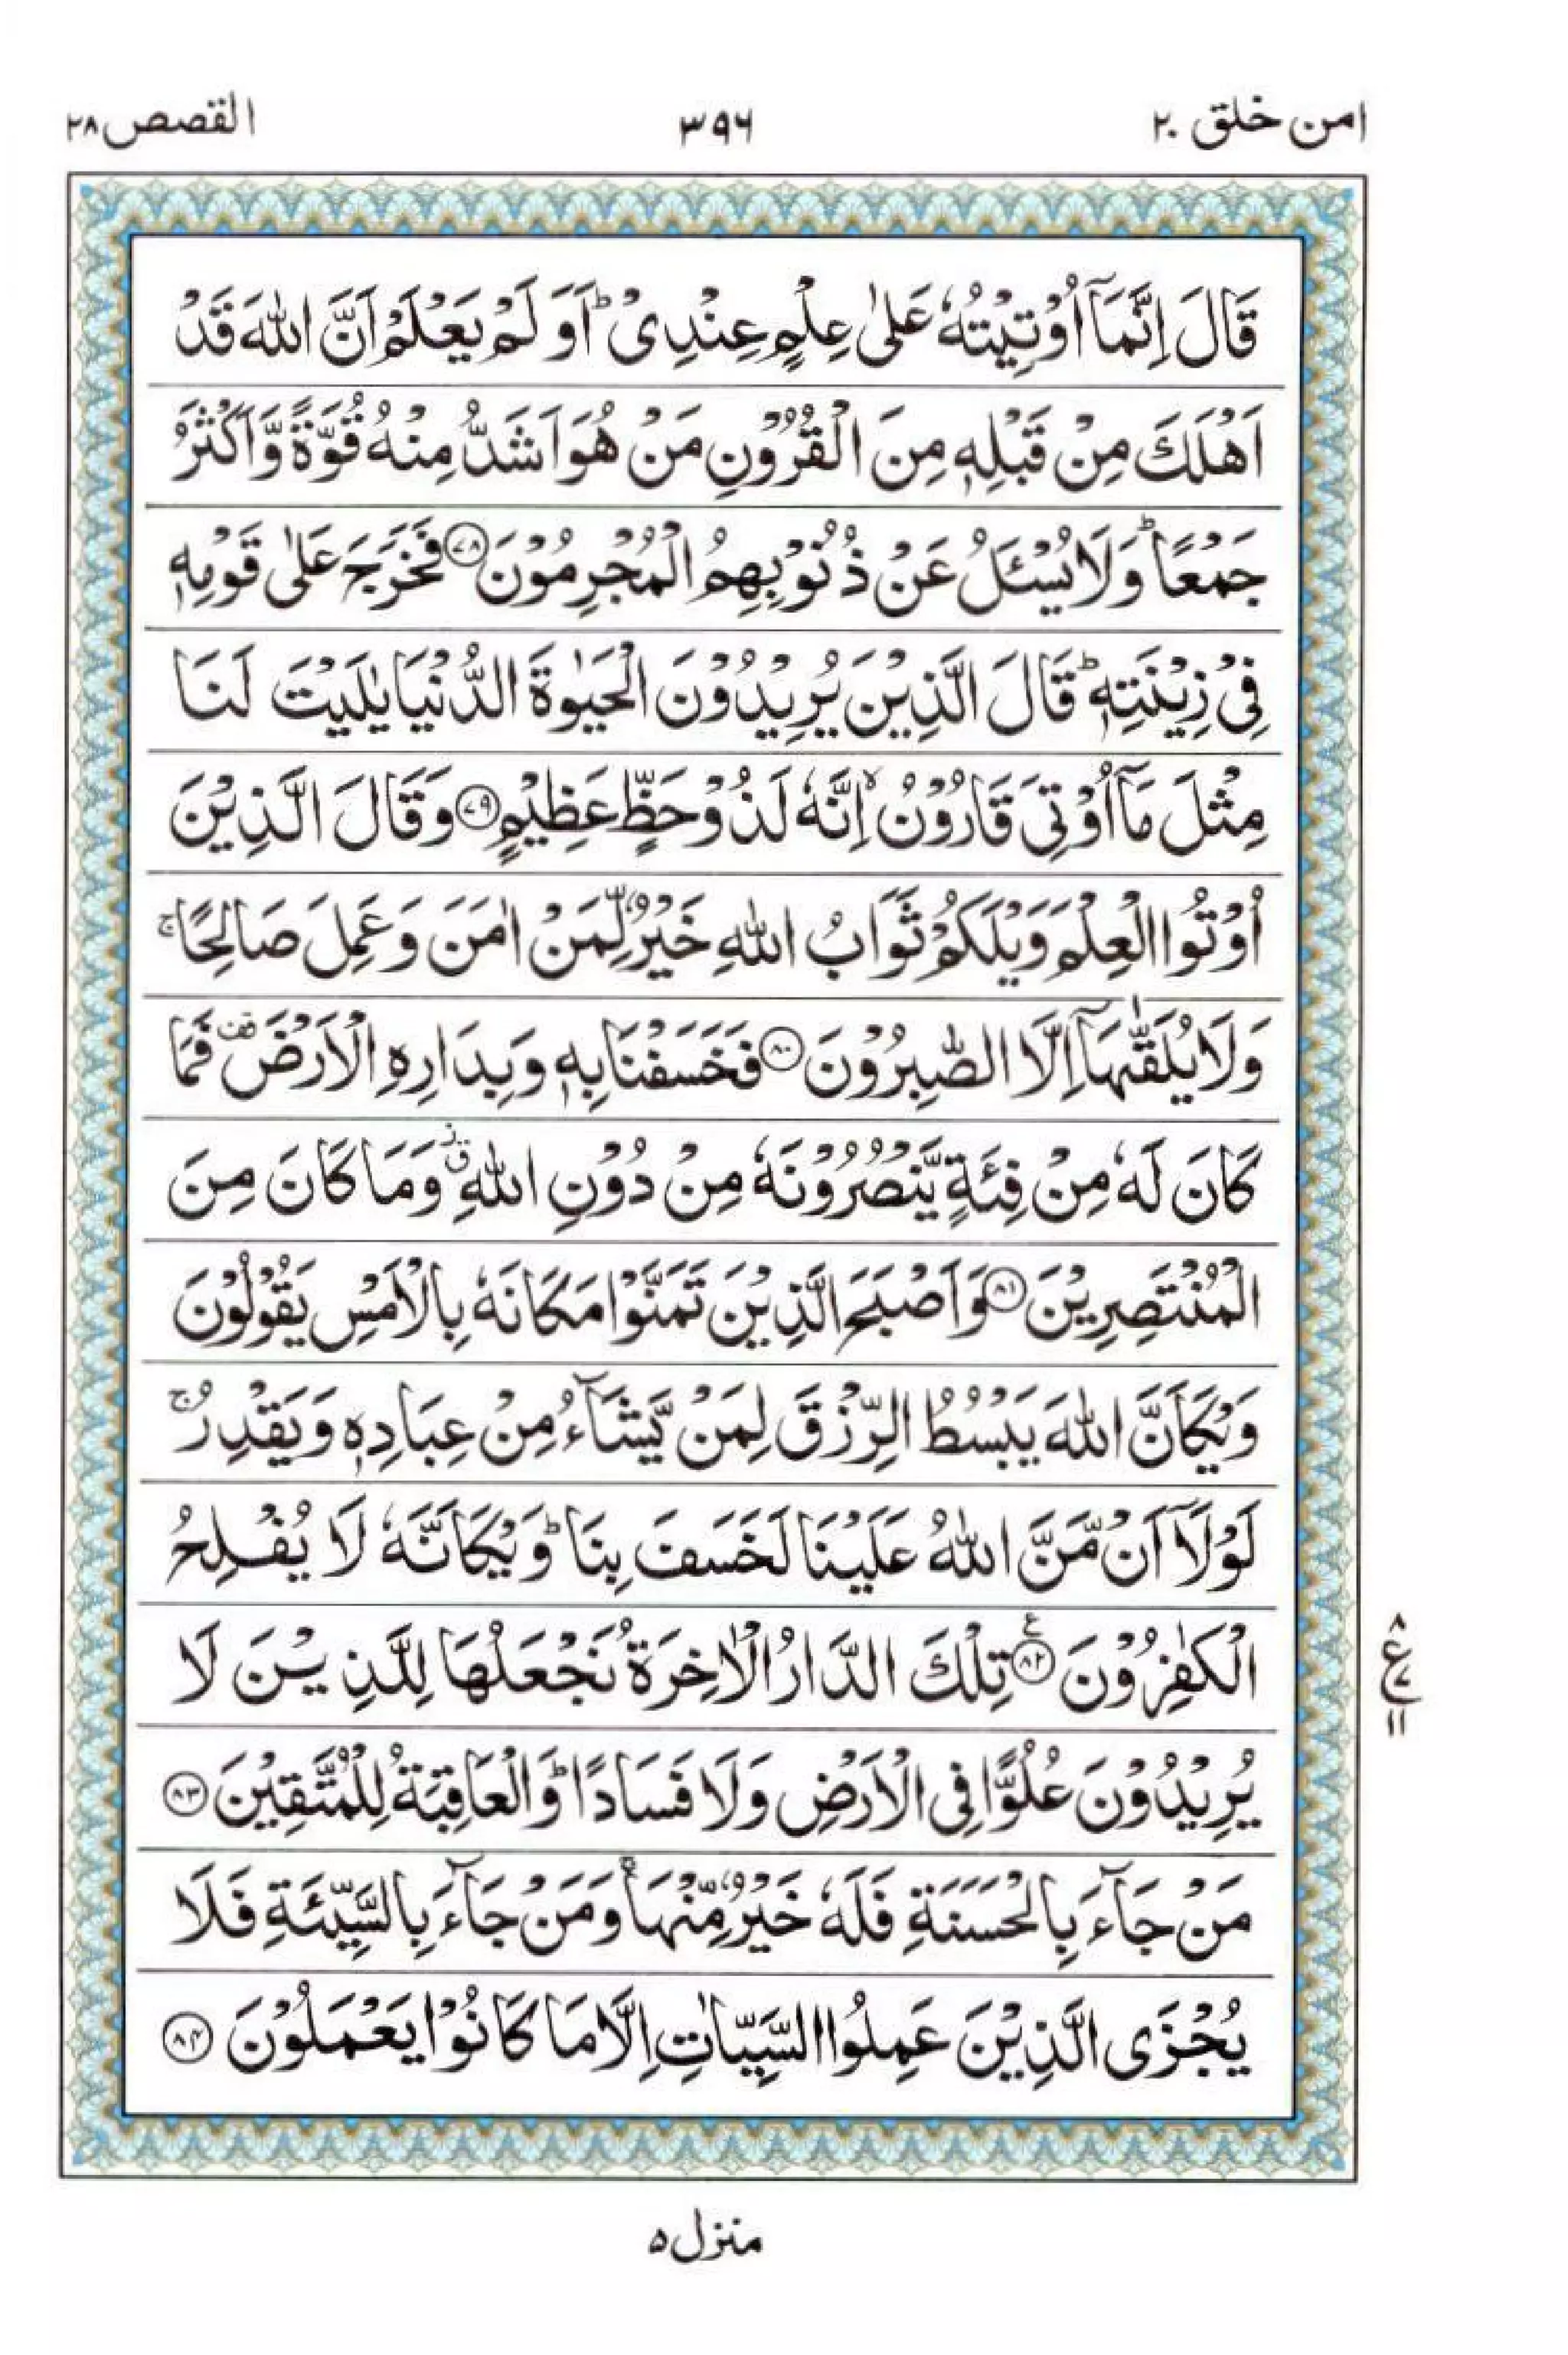 امن خلق ۲۰
۳۹۶
القصص ۲۸
قَالَ اِنَّمَاۤ اُوْتِیْتُهٗ عَلٰی عِلْمٍ عِنْدِیْ ؕ اَوَ لَمْ یَعْلَمْ اَنَّ اللّٰهَ قَدْ
اَهْلَكَ مِنْ قَبْلِهٖ مِنَ الْقُرُوْنِ مَنْ هُوَ اَشَدُّ مِنْهُ قُوَّةً وَّاَكْثَرُ
جَمْعًا ؕ وَلَا یُسْـَٔلُ عَنْ ذُنُوْبِهِمُ الْمُجْرِمُوْنَ ﴿۷۸﴾ فَخَرَجَ عَلٰی قَوْمِهٖ
فِیْ زِیْنَتِهٖ ؕ قَالَ الَّذِیْنَ یُرِیْدُوْنَ الْحَیٰوةَ الدُّنْیَا یٰلَیْتَ لَنَا
مِثْلَ مَاۤ اُوْتِیَ قَارُوْنُ ۙ اِنَّهٗ لَذُوْ حَظٍّ عَظِیْمٍ ﴿۷۹﴾ وَقَالَ الَّذِیْنَ
اُوْتُوا الْعِلْمَ وَیْلَكُمْ ثَوَابُ اللّٰهِ خَیْرٌ لِّمَنْ اٰمَنَ وَعَمِلَ صَالِحًا ۚ
وَلَا یُلَقّٰىهَاۤ اِلَّا الصّٰبِرُوْنَ ﴿۸۰﴾ فَخَسَفْنَا بِهٖ وَبِدَارِهِ الْاَرْضَ قف فَمَا
كَانَ لَهٗ مِنْ فِئَةٍ یَّنْصُرُوْنَهٗ مِنْ دُوْنِ اللّٰهِ ؗق وَمَا كَانَ مِنَ
الْمُنْتَصِرِیْنَ ﴿۸۱﴾ وَاَصْبَحَ الَّذِیْنَ تَمَنَّوْا مَكَانَهٗ بِالْاَمْسِ یَقُوْلُوْنَ
وَیْكَاَنَّ اللّٰهَ یَبْسُطُ الرِّزْقَ لِمَنْ یَّشَآءُ مِنْ عِبَادِهٖ وَیَقْدِرُ ۚ
لَوْلَاۤ اَنْ مَّنَّ اللّٰهُ عَلَیْنَا لَخَسَفَ بِنَا ؕ وَیْكَاَنَّهٗ لَا یُفْلِحُ
الْكٰفِرُوْنَ ﴿۸۲﴾ ع تِلْكَ الدَّارُ الْاٰخِرَةُ نَجْعَلُهَا لِلَّذِیْنَ لَا
۸
ع ۷
۱۱
یُرِیْدُوْنَ عُلُوًّا فِی الْاَرْضِ وَلَا فَسَادًا ؕ وَالْعَاقِبَةُ لِلْمُتَّقِیْنَ ﴿۸۳﴾
مَنْ جَآءَ بِالْحَسَنَةِ فَلَهٗ خَیْرٌ مِّنْهَا ۚ وَمَنْ جَآءَ بِالسَّیِّئَةِ فَلَا
یُجْزَی الَّذِیْنَ عَمِلُوا السَّیِّاٰتِ اِلَّا مَا كَانُوْا یَعْمَلُوْنَ ﴿۸۴﴾
منزل ۵